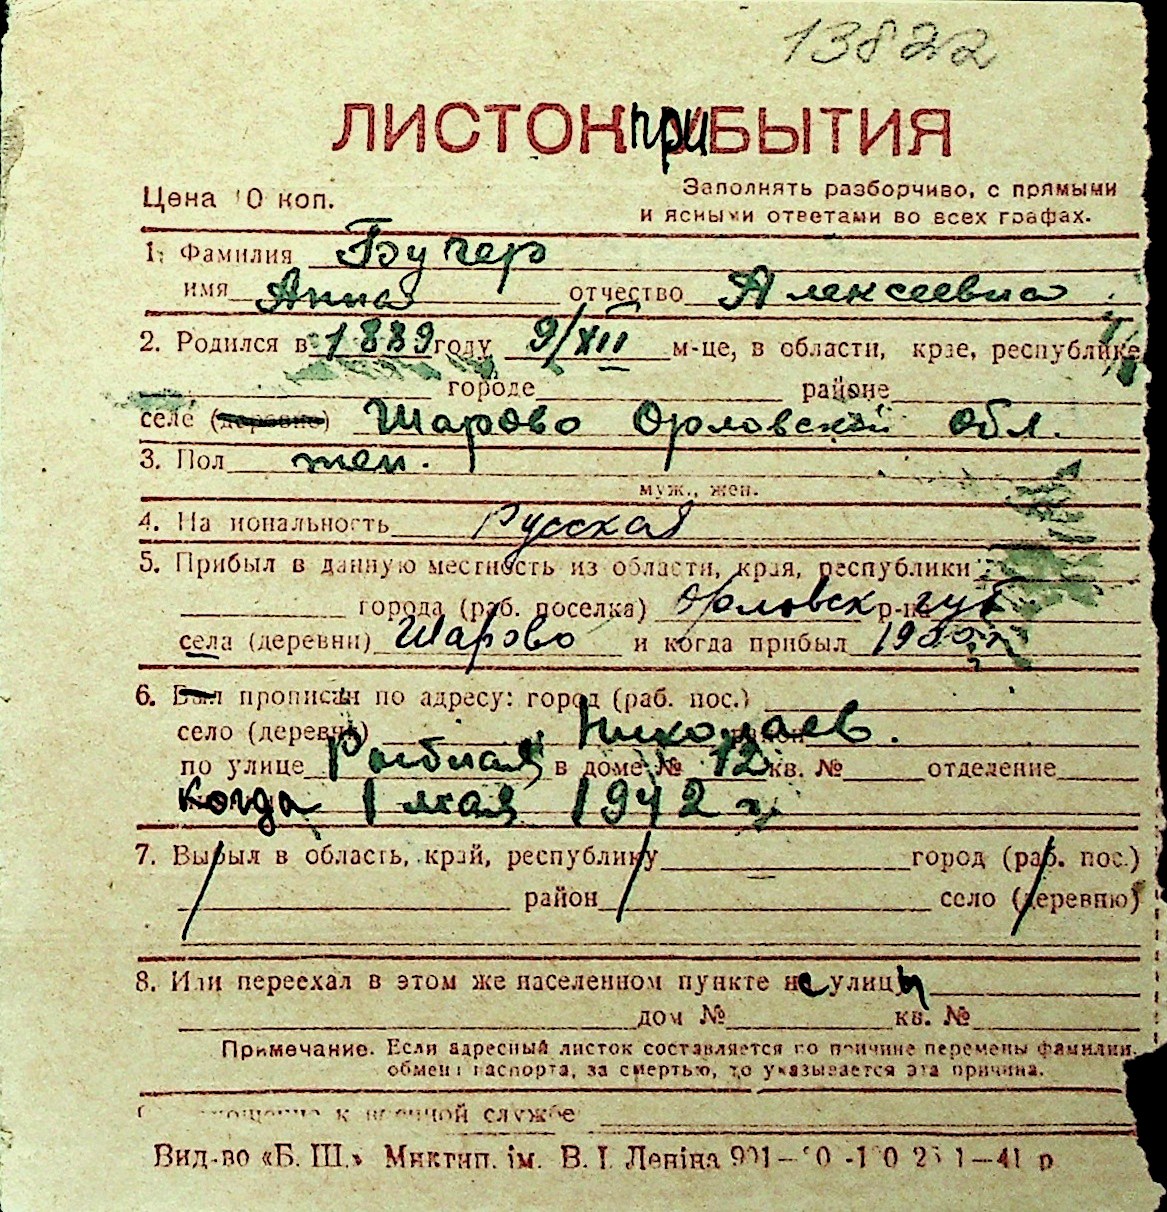 13822
ЛИСТОК прИБЫТИЯ
Цена 10 коп.
Заполнять разборчиво, с прямыми
и ясными ответами во всех графах.
1. Фамилия Бучер
имя Анна отчество Алексеевна
2. Родился в 1889 году 9/XII м-це, в области, крае, республике
городе районе
селе (деревне) Шарово Орловской Обл.
3. Пол жен.
муж., жен.
4. Национальность Русская
5. Прибыл в данную местность из области, края, республики
города (раб. поселка) Орловск р-на губ
села (деревни) Шарово и когда прибыл
6. Был прописан по адресу: город (раб. пос.)
село (деревня) Николаев.
по улице Рыбная в доме № 12 кв. № отделение
когда 1 мая 1942 г.
7. Выбыл в область, край, республику город (раб. пос.)
район село (деревню)
8. Или переехал в этом же населенном пункте не улицы
дом № кв. №
Примечание. Если адресный листок составляется по причине перемены фамилии,
обмена паспорта, за смертью, то указывается эта причина.
к военной службе
Вид-во «Б. Ш.» Миктип. ім. В. І. Леніна